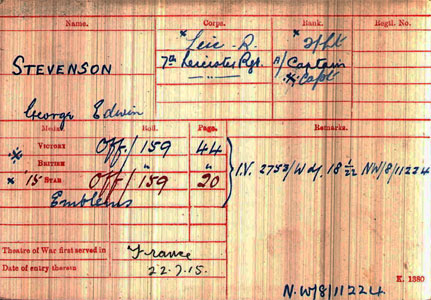 Name. Corps. Rank. Regtl. No.
× Leic. R. × 2/Lt
STEVENSON 7th Leicester Rgt. A/Captain
× Capt
George Edwin
Medal. Roll. Page. Remarks.
× VICTORY Off/159 44
BRITISH " "
× '15 STAR Off/159 20 I.V. 2753/W d/. 18 NW/8/11224
Emblems
Theatre of War first served in France
Date of entry therein 22.7.15. K. 1380
N.W/8/11224